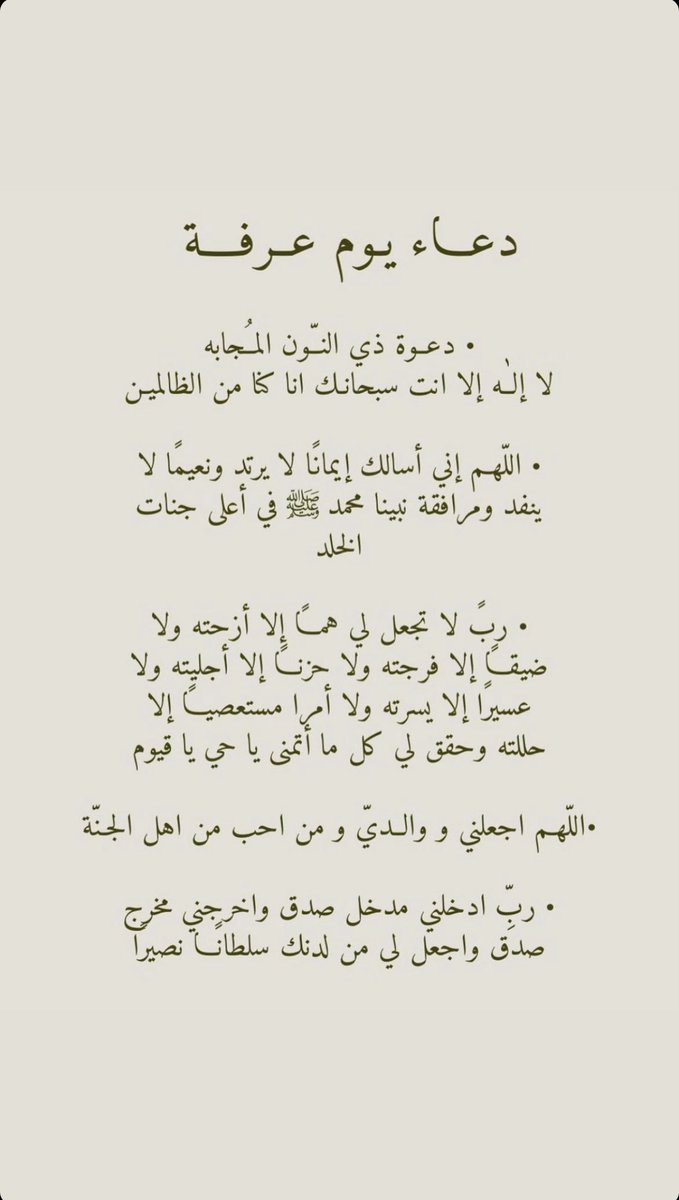 دعـــاء يـوم عـرفـــة
• دعـوة ذي النـّون المـُجابه
لا إلـٰه إلا انت سبحانـك انا كنا من الظالميـن
• اللّهـم إني أسالك إيمانًا لا يرتد ونعيمًا لا
ينفد ومرافقة نبينا محمد ﷺ في أعلى جنات
الخلد
• ربً لا تجعل لي همـًا إلا أزحته ولا
ضيقـًا إلا فرجته ولا حزنـًا إلا أجليته ولا
عسيرًا إلا يسرته ولا أمرا مستعصيـًا إلا
حللته وحقق لي كل ما أتمنى يا حي يا قيوم
•اللّهـم اجعلني و والـديّ و من احب من اهل الجـنّة
• ربِّ ادخلني مدخل صدق واخرجني مخرج
صدق واجعل لي من لدنك سلطانًـا نصيرًا